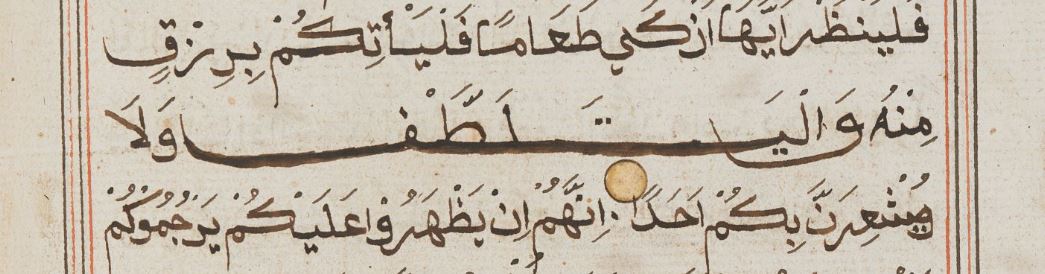 فَلْيَنْظُرْ اَيُّهَا اَزْكَي طَعَامًا فَلْيَأْتِكُمْ بِرِزْقٍ
مِنْهُ وَالْيَتَلَطَّفْ وَلَا
يُشْعِرَنَّ بِكُمْ اَحَدًا اِنَّهُمْ اِنْ يَظْهَرُوا عَلَيْكُمْ يَرْجُمُوكُمْ